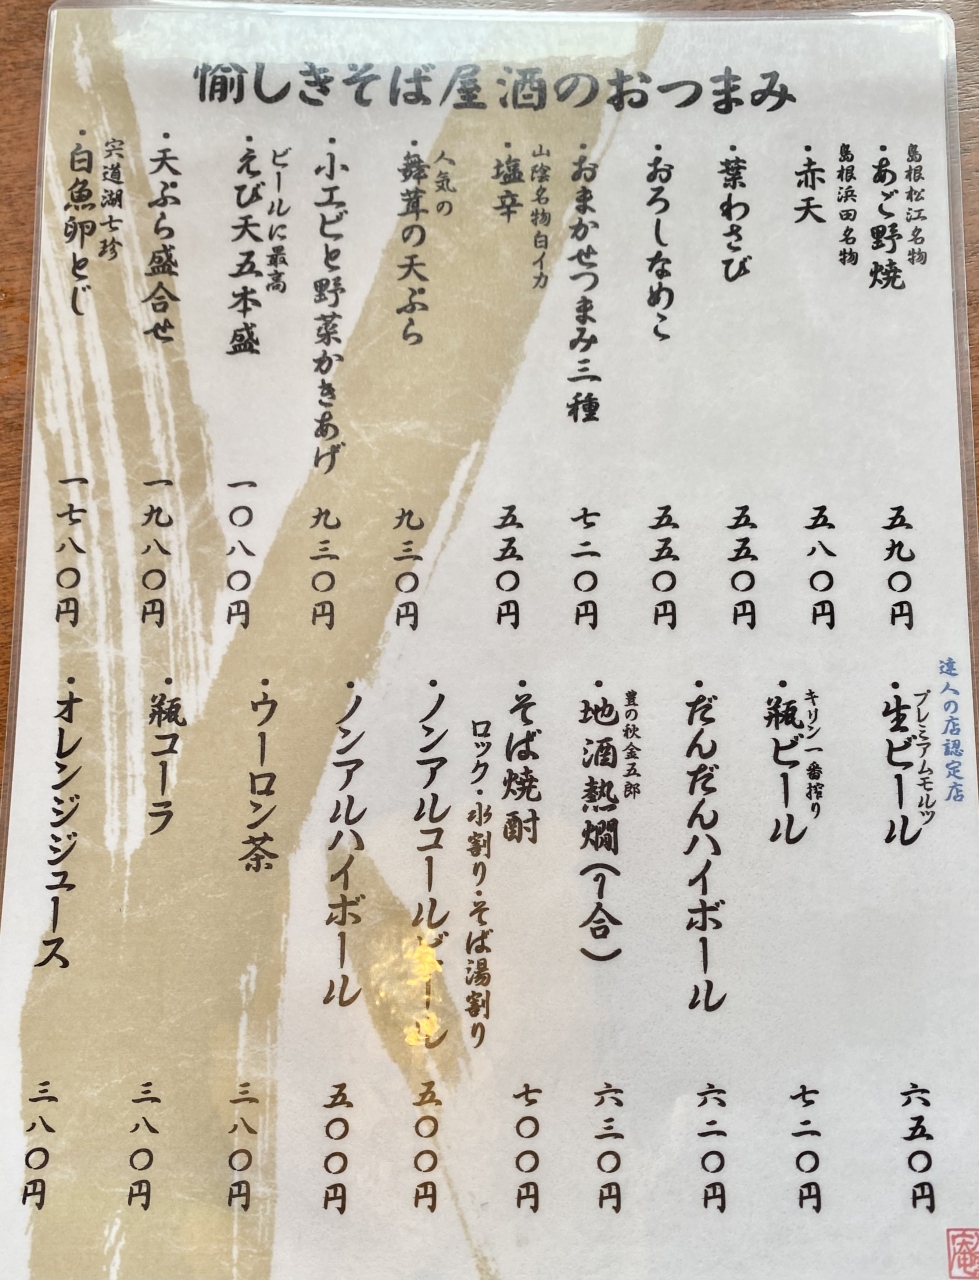 愉しきそば屋酒のおつまみ
島根松江名物
・あご野焼 五九〇円
島根浜田名物
・赤天 五八〇円
・葉わさび 五五〇円
・おろしなめこ 五五〇円
・おまかせつまみ三種 七二〇円
山陰名物白イカ
・塩辛 五五〇円
人気の
・舞茸の天ぷら 九三〇円
・小エビと野菜かきあげ 九三〇円
ビールに最高
・えび天五本盛 一〇八〇円
・天ぷら盛合せ 一九八〇円
宍道湖七珍
・白魚卵とじ 一七八〇円
達人の店認定店
プレミアムモルツ
・生ビール 六五〇円
キリン一番搾り
・瓶ビール 七二〇円
・だんだんハイボール 六二〇円
豊の秋金五郎
・地酒熱燗(1合) 六三〇円
・そば焼酎 七〇〇円
ロック・水割り・そば湯割り
・ノンアルコールビール 五〇〇円
・ノンアルハイボール 五〇〇円
・ウーロン茶 三八〇円
・瓶コーラ 三八〇円
・オレンジジュース 三八〇円
庵